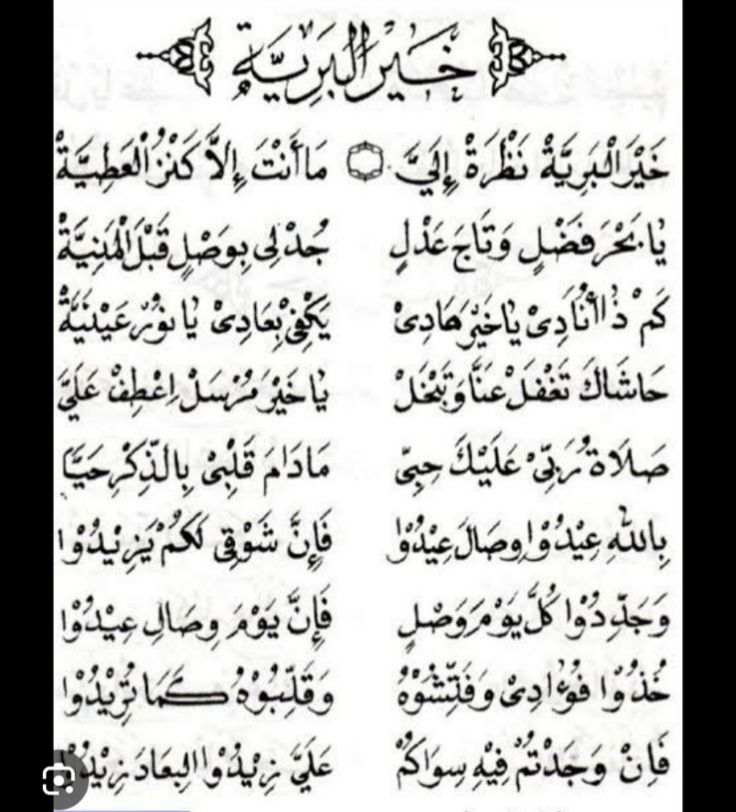 خَيْرَ الْبَرِيَّةْ
خَيْرَ الْبَرِيَّةْ نَظْرَةْ إِلَيَّ ۞ مَا أَنْتَ إِلَّا كَنْزُ الْعَطِيَّةْ
يَا بَحْرَ فَضْلٍ وَتَاجَ عَدْلٍ جُدْلِى بِوَصْلٍ قَبْلَ الْمَنِيَّةْ
كَمْ ذَا أُنَادِىْ يَا خَيْرَ هَادِىْ يَكْفِىْ بِعَادِىْ يَا نُوْرَ عَيْنَيَّةْ
حَاشَاكَ تَغْفَلْ عَنَّا وَتَبْخَلْ يَا خَيْرَ مُرْسَلْ اِعْطِفْ عَلَيَّ
صَلَاةُ رَبِّىْ عَلَيْكَ حِبِّى مَادَامَ قَلْبِىْ بِالذِّكْرِ حَيَّا
بِاللّٰهِ عِيْدُوْا وِصَالَ عِيْدُوْا فَإِنَّ شَوْقِى لَكُمْ يَزِيْدُوْا
وَجَدِّدُوْا كُلَّ يَوْمَ وَصْلٍ فَإِنَّ يَوْمَ وِصَالِ عِيْدُوْا
خُذُوْا فُؤَادِىْ وَفَتِّشُوْهُ وَقَلِّبُوْهُ كَمَا تُرِيْدُوْا
فَاِنْ وَجَدْتُمْ فِيْهِ سِوَاكُمْ عَلَيَّ زِيْدُوْا الْبِعَادَ زِيْدُوْا